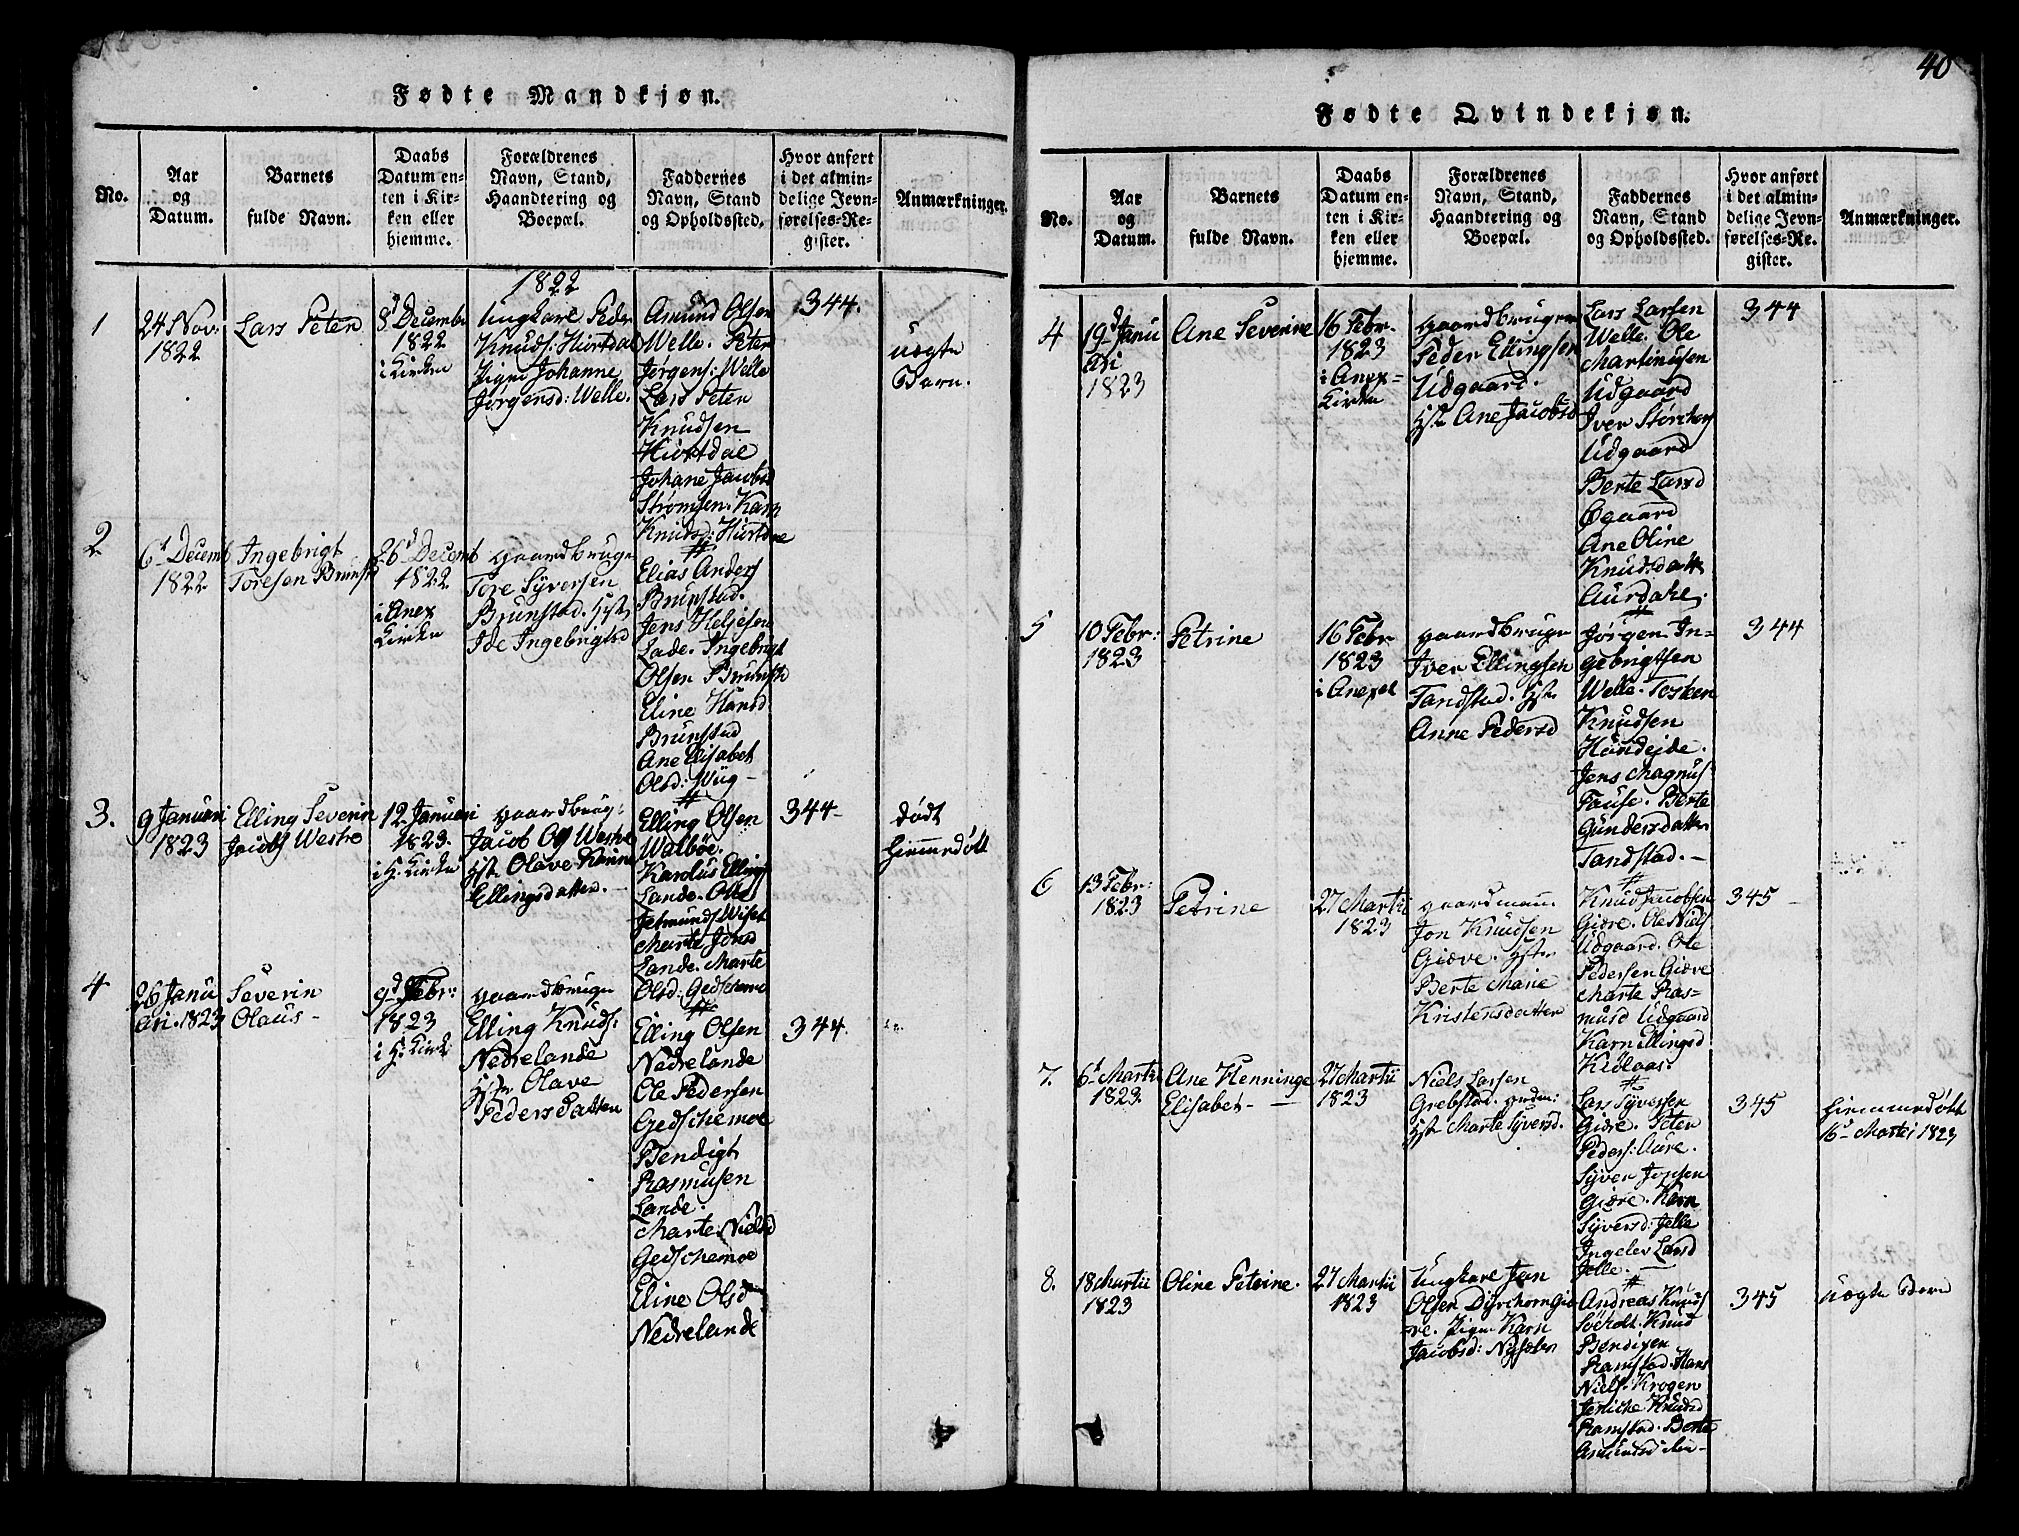 Fødte Mandkjøn.
No.
Aar
og
Datum.
Barnets
fulde Navn.
Daabs
Datum en-
ten i Kir-
ken eller
hjemme.
Forældrenes
Navn, Stand,
Haandtering og
Boepæl.
Faddernes
Navn, Stand
og Opholdssted.
Hvor anført
i det almin-
delige Jevn-
førelses-Re-
gister.
Anmærkninger.
1822
1
24 Nov:
1822
Lars Peter
8d Decembr
1822
i Kirken
Ungkarl Peder
Knuds: Hiørtdal
Pigen Johanne
Jørgensd: Welle.
Amund Olsen
Welle. Peter
Jørgens: Welle
Lars Peter
Knudsen
Hiørtdal
Johane Jacobsd
Strømsen. Karn
Knudsd: Hiørtdae
344.
uægte
Barn.
2
6d Decemb
1822
Ingebrigt
Toresen Brunst
26d Decemb
1822
i Anex
Kirken
Gaardbruger
Tore Syversen
Brunstad. Hst
Ide Ingebrigtsd
Elias Anders
Brunstad.
Jens Heljesen
Lade. Ingebrigt
Olsen Brunstd
Eline Hansd
Brunstad
Ane Elisabet
Olsd: Wüg -
3.
9 Januari
1823
Elling Severin
Jacobs Westre
12 Januari
1823.
i H. Kirken
Gaardbrug:
Jacob Ols Westre
Hst. Olave Karine
Ellingsdatter.
Elling Olsen
Walbøe.
Karolus Ellings
Lande. Ole
Jetmunds Wiset
Marte Jonsd
Lande. Marte
Olsd: Gedschemoe
344-
død
Hiemmedøbt
4
26 Janu
ari. 1823
Severin
Olaus-
9d Febr:
1823
i H. Kirk
Gaardbruger
Elling Knuds:
Nedrelande
Hst. Olave
Pedersdatter
Elling Olsen
Nedrelande
Ole Pedersen
Gedschemoe
Bendigt
Rasmusen
Lande.
Marte Nielsd
Gedschemoe
Eline Olsd
Nedrelande
344.
40
Fødte Qvindekjøn.
No.
Aar
og
Datum.
Barnets
fulde Navn.
Daabs
Datum en-
ten i Kir-
ken eller
hjemme.
Forældrenes
Navn, Stand,
Haandtering og
Boepæl.
Faddernes
Navn, Stand
og Opholdssted.
Hvor anført
i det almin-
delige Jevn-
førelses-Re-
gister.
Anmærkninger.
4
19d Janu
Ari
1823
Ane Severine
16 Febr.
1823
i Anex-
Kirken
Gaardbruger
Peder Ellingsen
Udgaard.
Hst. Ane Jacobsd
Lars Larsen
Welle. Ole
Martinusen
Udgaard
Iver Størchers
Udgaard
Berte Larsd
Øgaard
Ane Oline
Knudsdatt
Aurdahl.
344
5
10 Febr:
1823
Petrine
16 Febr
1823
i Anexet
Gaardbruger
Iver Ellingsen
Tandstad. Hst.
Anne Pedersd
Jørgen In-
gebrigtsen
Welle. Tosken
Knudsen
Hundejde.
Jens Magnus
Fause. Berte
Gundersdatter
Tandstad.-
344
6
13 Febr:
1823
Petrine
27 Martii
1823
Gaardmand
Jon Knudsen
Giæve. Hst.
Berte Marie
Kristensdatter
Knud Jacobsen
Giære. Ole Niels
Udgaard. Ole
Pedersen Giæve
Marte Ras-
musd Udgaard
Karn Ellingsd
Kidlaas.
345-
7.
6d Martii
1823.
Ane Henninge
Elisabet-
27 Martii
1823
Niels Larsen
Grebstad.
Hst. Marte Syversd.
Lars Syversen
Giære. Peter
Peders: Aure.
Syver Jonsen
Giære. Karn
Syversd: Jelle
Ingelev Larsd
Jelle.-
345
Hiemmedøbt
16d Martei 1823
8.
18 Martii
1823
Oline Petrine.
27 Martii
1823
Ungkarl Jan
Olsen Dyrchorn Giæ
re. Pigen Karn
Jacobsd: Nysæter
Andreas Knuds
Søeholt. Knud
Bendixen
Ramstad. Hans
Niels: Krogen
Jeniche Knudsd
Ramstad. Berte
Amundsd
345
uægte Barn